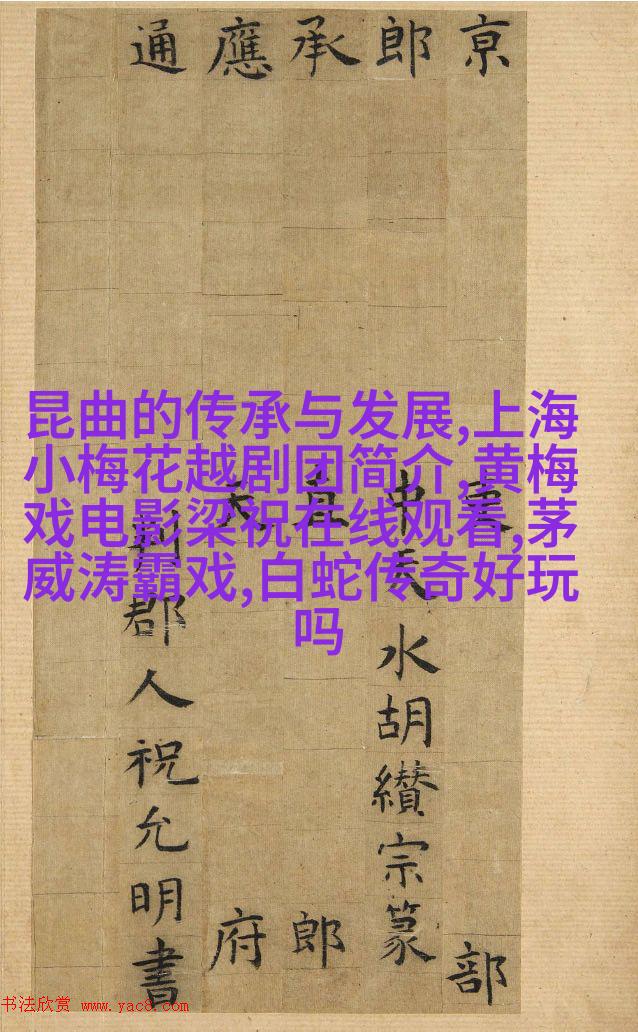 京部
郎中天水胡纘宗篆
承直郎
應天府
通判郡人祝允明書
昆曲的传承与发展,上海
小梅花越剧团简介,黄梅
戏电影梁祝在线观看,茅
威涛霸戏,白蛇传奇好玩
吗
书法欣赏 www.yac8.com